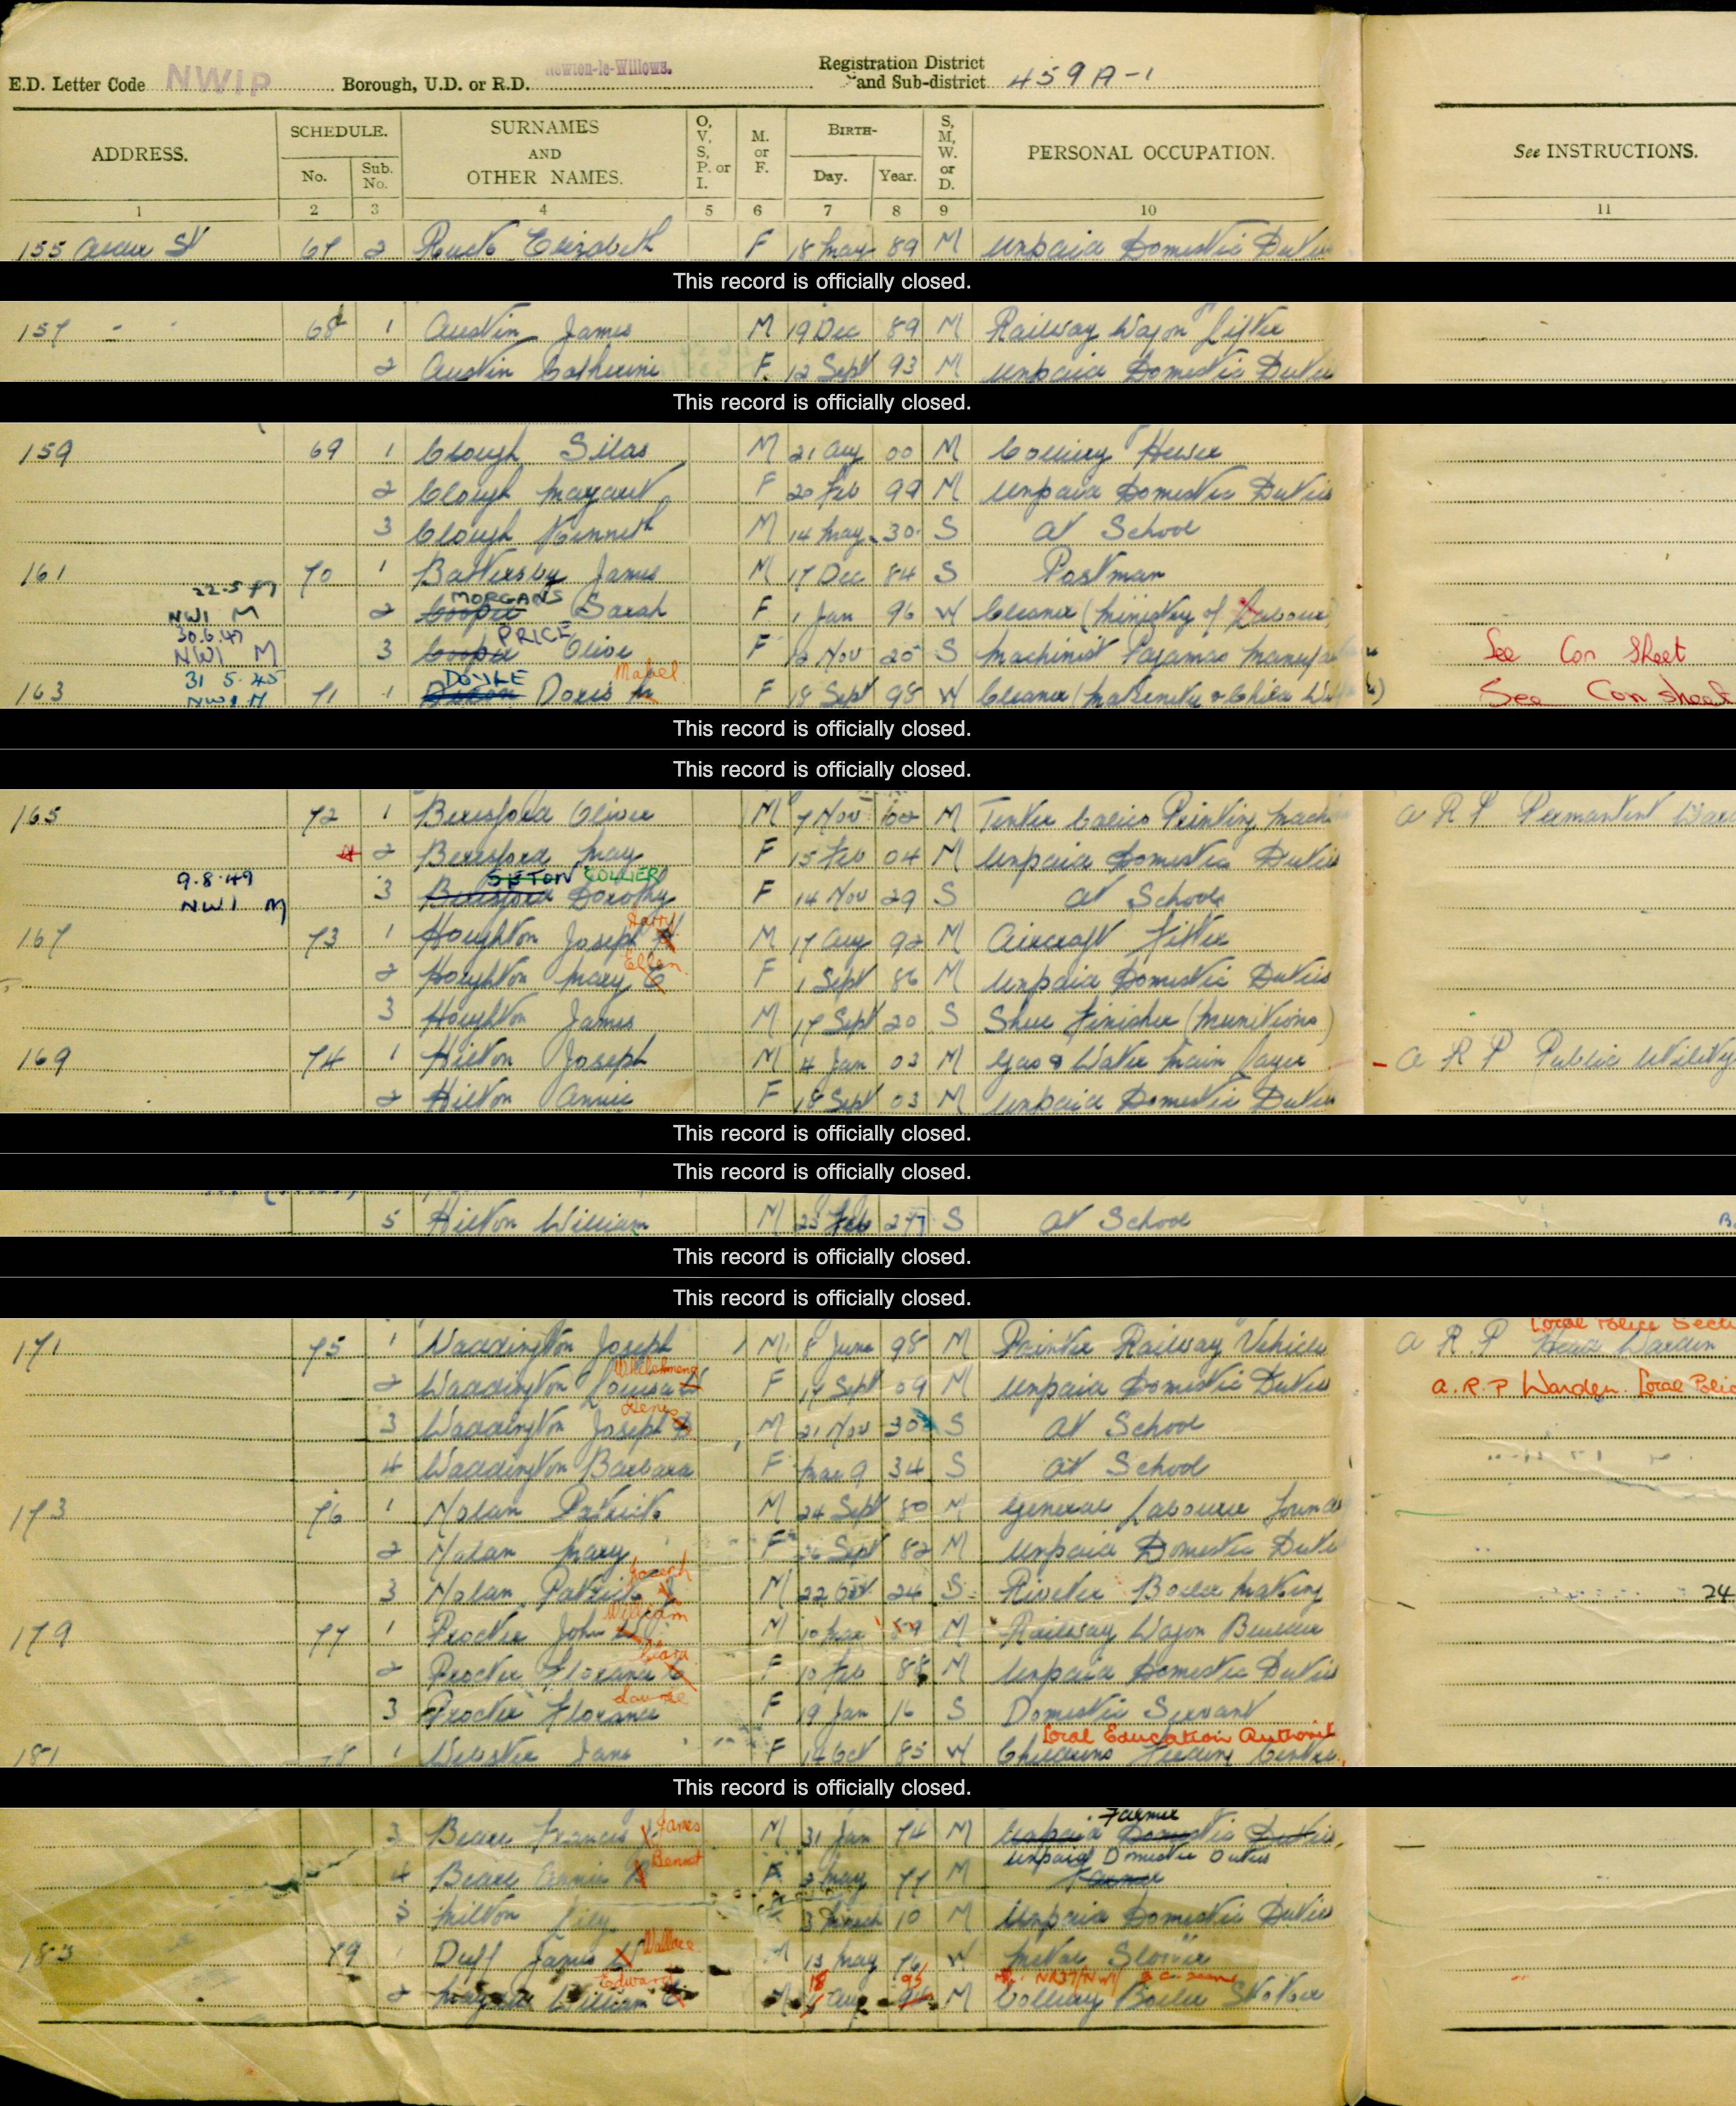 E.D. Letter Code NWIP Borough, U.D. or R.D. Newton-le-Willows. Registration District and Sub-district 459 A-1
ADDRESS. SCHEDULE. No. Sub. No. SURNAMES AND OTHER NAMES. O, V, S, P. or I. M. or F. BIRTH- Day. Year. S, M, W. or D. PERSONAL OCCUPATION. See INSTRUCTIONS.
1 2 3 4 5 6 7 8 9 10 11
155 St 67 2 Elizabeth F 18 May 89 M Unpaid Domestic Duties
This record is officially closed.
157 - - 68 1 Austin James M 19 Dec 89 M Railway Wagon Lifter
2 Austin Catherine F 12 Sept 93 M Unpaid Domestic Duties
This record is officially closed.
159 69 1 Clough Silas M 21 Aug 00 M Colliery Hewer
2 Clough Margaret F 20 Feb 99 M Unpaid Domestic Duties
3 Clough Kenneth M 14 May 30 S At School
161 70 1 Battersby James M 17 Dec 84 S Postman
22.5 NWI M 2 Cooper MORGANS Sarah F 1 Jan 96 W Cleaner (Ministry of Labour)
30.6.47 NWI M 3 Cooper PRICE Olive F 12 Nov 25 S Machinist Pajamas See Con Sheet
163 31 5.45 NWI M 71 1 DOYLE Doris M Mabel F 18 Sept 98 W Cleaner (Maternity & Child See Con sheet
This record is officially closed.
This record is officially closed.
165 72 1 Beresford Oliver M 7 Nov 02 M Tenter Calico Printing Machine A R P Permantent
2 Beresford May F 15 Feb 04 M Unpaid Domestic Duties
9.8.49 NWI M 3 Beresford SEFTON COLLIER Dorothy F 14 Nov 29 S At School
167 73 1 Houghton Joseph H Harry M 17 Aug 92 M Aircraft Fitter
2 Houghton Mary E Ellen F 1 Sept 86 M Unpaid Domestic Duties
3 Houghton James M 17 Sept 20 S Finisher (Munitions)
169 74 1 Hilton Joseph M 4 Jan 03 M Gas & Water Main Layer A R P Public Utility
2 Hilton Annie F 18 Sept 03 M Unpaid Domestic Duties
This record is officially closed.
This record is officially closed.
5 Hilton William M 23 Feb 27 S At School
This record is officially closed.
This record is officially closed.
171 75 1 Waddington Joseph M 8 June 98 M Painter Railway Vehicles A R P Head Warden Local Police
2 Waddington Louisa W F 17 Sept 09 M Unpaid Domestic Duties A.R.P Warden. Local
3 Waddington Joseph D Denis M 21 Nov 30 S At School
4 Waddington Barbara F Mar 9 34 S At School
173 76 1 Nolan Patrick M 24 Sept 80 M General Labourer
2 Nolan Mary F 26 Sept 82 M Unpaid Domestic
3 Nolan Patrick J Joseph M 22 Oct 24 S Riveter Boiler Making 24
179 77 1 Procter John W William M 10 Mar M Railway Wagon Builder
2 Procter Florance C Clara F 10 Feb 88 M Unpaid Domestic Duties
3 Procter Florance Louise F 19 Jan 16 S Domestic Servant
181 78 1 Webster Jane F 14 Oct 85 W Childrens Feeding Centre Local Education
This record is officially closed.
3 Francis J James M 31 Jan 74 M Unpaid Domestic Duties Farmer
4 Annie B Bennet F 2 May 77 M Farmer Unpaid Domestic Duties
5 Milton Lily 3 March 10 M Unpaid Domestic Duties
183 79 1 Duff James W Wallace M 13 May 76 W
2 William E Edward M 18 Aug 95 M Colliery Boiler Stoker